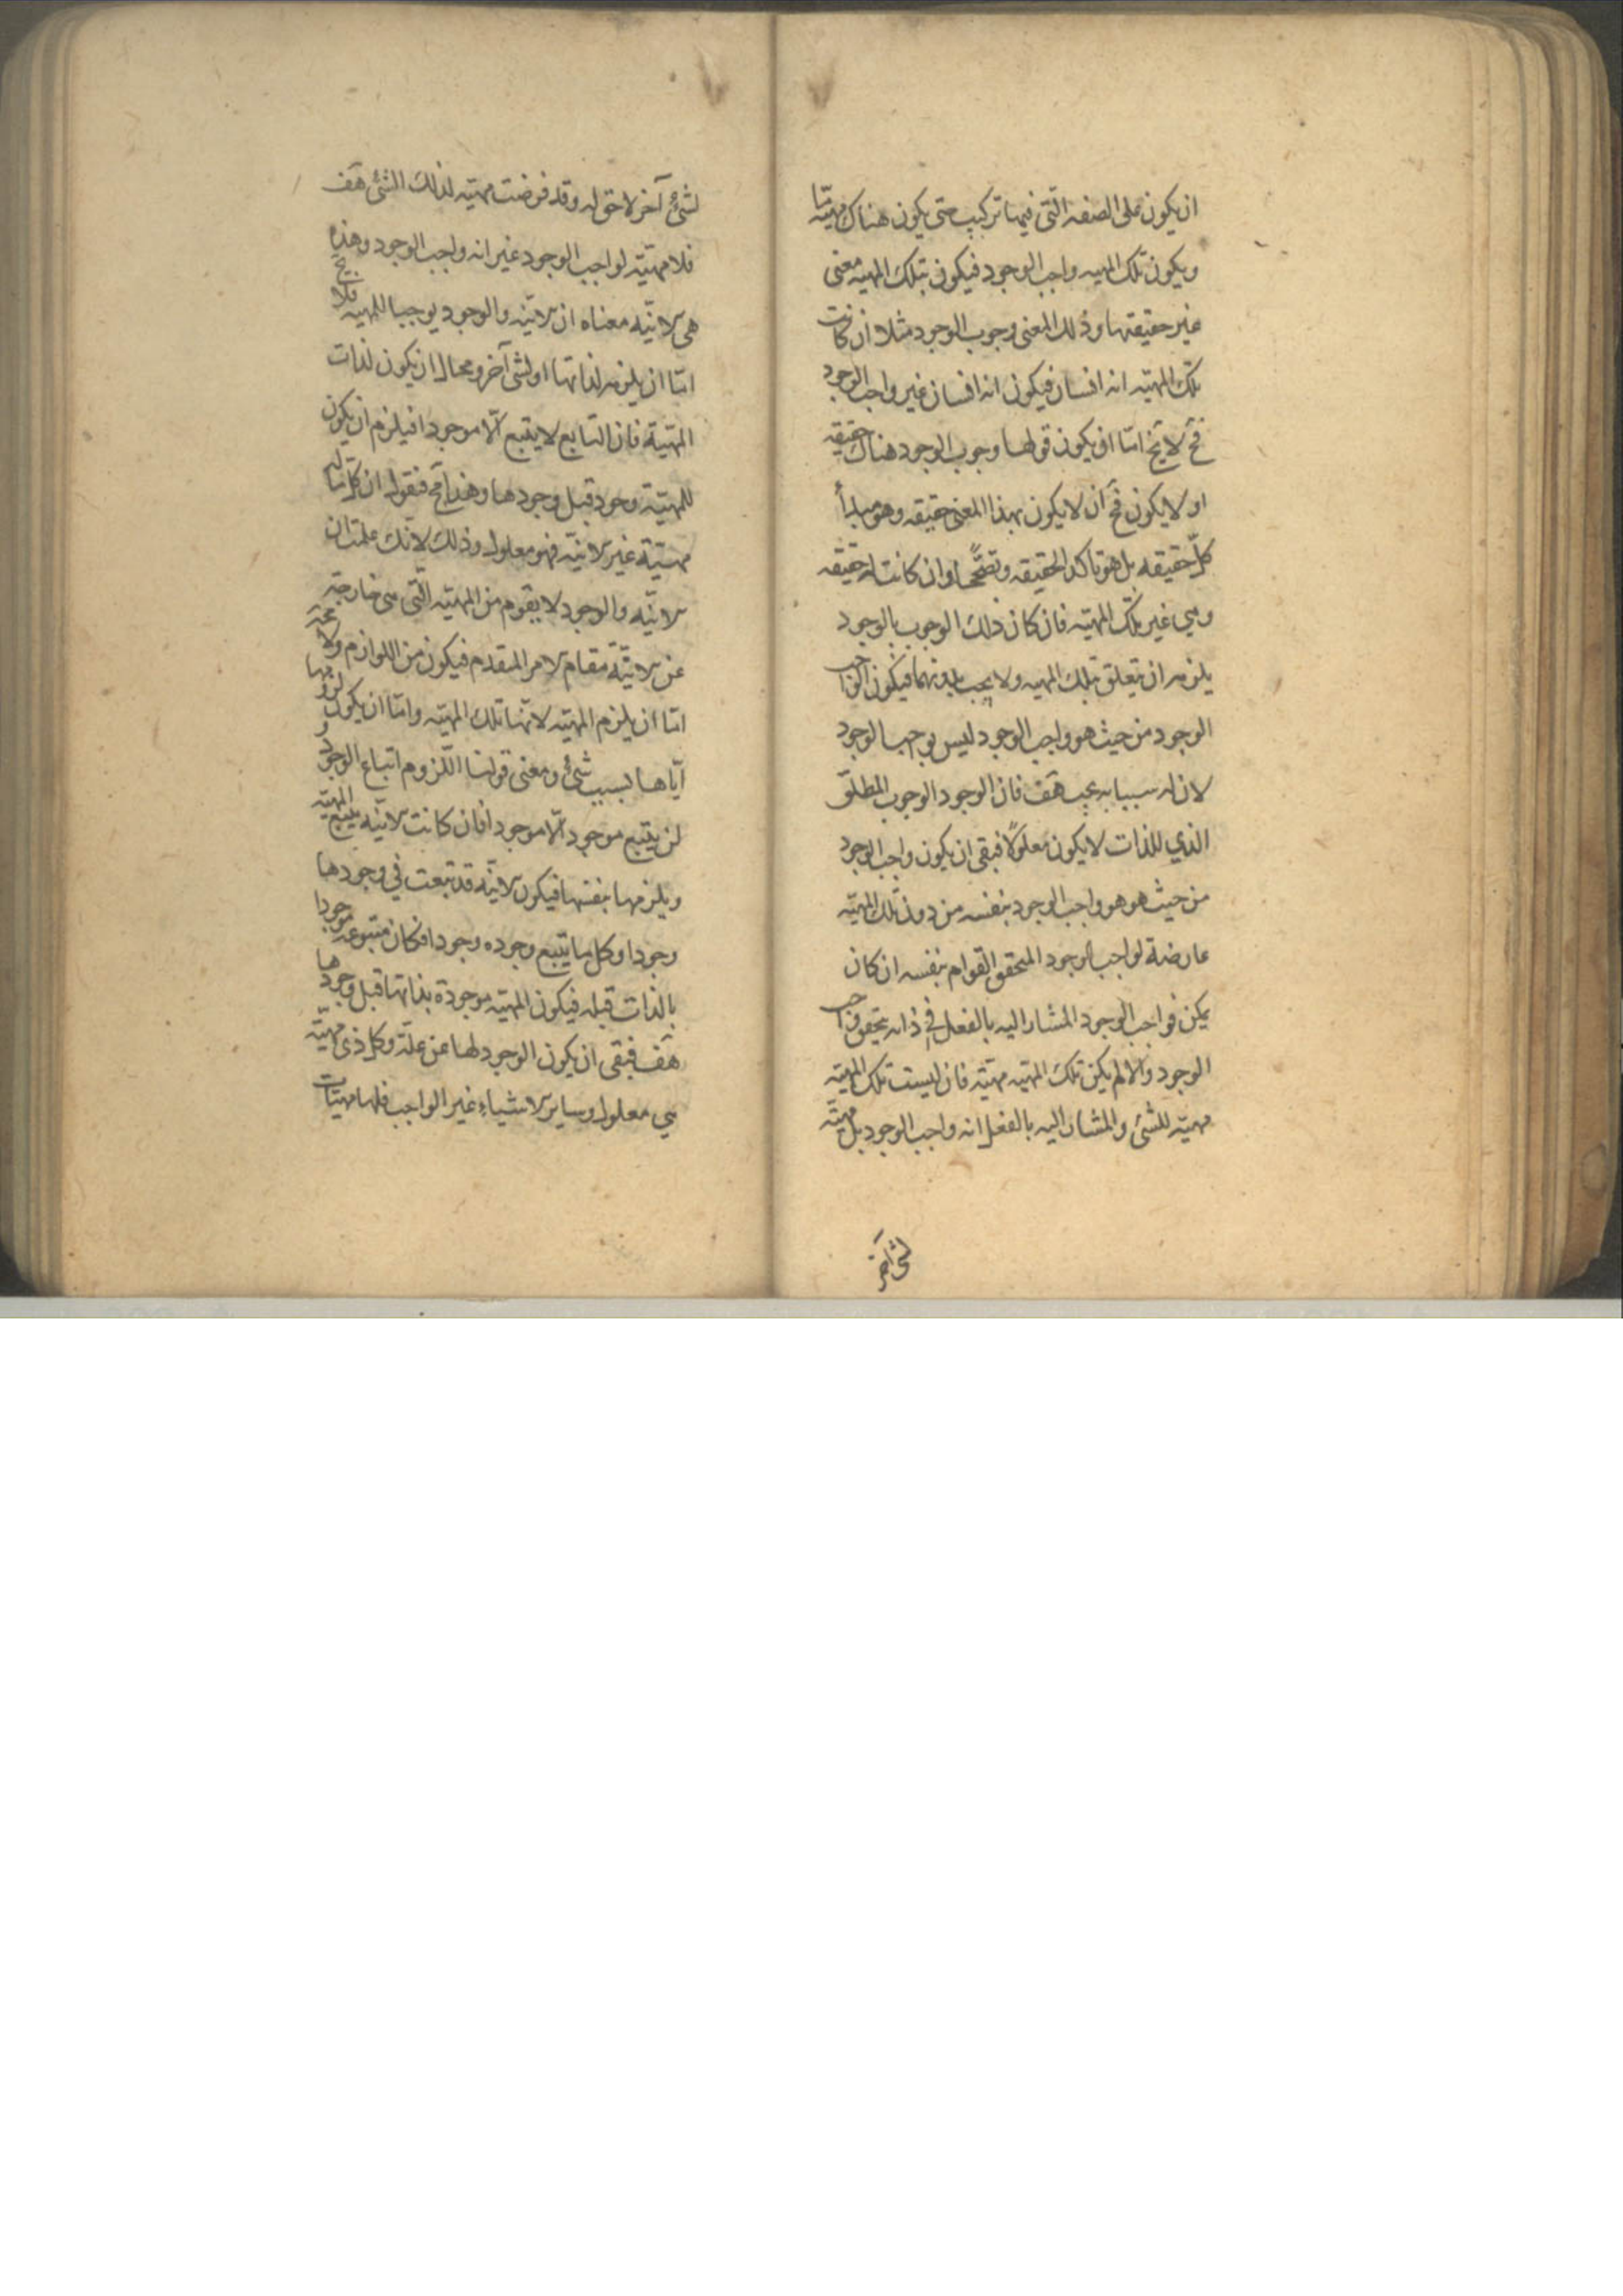 ان يكون على الصفه التى فيها تركيب حتى يكون هناك مهيّة ما
ويكون تلك المهيه واجب الوجود فيكون لتلك المهيه معنى
غير حقيقتها وذلك المعنى وجوب الوجود مثلا ان كانت
تلك المهيّه انه انسان فيكون انه انسان غير واجب الوجود
فح لا يخ امّا ان يكون قولها وجوب الوجود هناك حقيقه
او لا يكون فح ان لا يكون بهذا المعنى حقيقه وهو مبدأ
كلّ حقيقه بل هو تاكد الحقيقه وتصحّحها وان كانت له حقيقه
وهي غير تلك المهيّه فان كان ذلك الوجوب بالوجود
يلزمه ان يتعلق بتلك المهيه ولا يجب بدونهما فيكون واجب
الوجود من حيث هو واجب الوجود ليس بواجب الوجود
لان له سببا به يجب هف فان الوجود الوجوب المطلق
الذي للذات لا يكون معلولًا فبقى ان يكون واجب الوجود
من حيث هو هو واجب الوجود بنفسه من دون تلك المهيّه
عارضة لواجب الوجود المتحقق القوام بنفسه ان كان
يمكن فواجب الوجود المشار اليه بالفعل في ذاته يتحقق واجب
الوجود والا لم يكن تلك المهيّه مهيّه فان ليست تلك المهيّه
مهيّه للشئ والمشار اليه بالفعل انه واجب الوجود بل مهيّه
لشئ آخر
لشئ آخر لاحق له وقد فرضت مهيّه لذلك الشئ هف
فلا مهيّه لواجب الوجود غير انه واجب الوجود وهذه
هى الانيّه معناه ان الانيّه والوجود يوجبا للمهيه فلا يخ
امّا ان يلزمه لذاتها او لشى آخر ومحال ان يكون لذات
المهيّة فان التابع لا يتبع الّا موجودا فيلزم ان يكون
للمهيّة وجود قبل وجودها وهذا مح فنقول ان كل ما له
مهيّة غير الانيّه فهو معلول وذلك لانّك علمت ان
الانيّه والوجود لا يقوم من المهيّه التّى هى خارجة
عن الانيّة مقام الامر المقدم فيكون من اللوازم ولا يخ
امّا ان يلزم المهيّه لانّها تلك المهيّه وامّا ان يكون لزومها
ايّاها بسبب شئ ومعنى قولنا اللّزوم اتباع الوجود و
لن يتبع موجود الّا موجودا فان كانت الانيّه يتبع المهيّه
ويلزمها بنفسها فيكون الانيّه قد تبعت في وجودها
وجودا وكل ما يتبع وجوده وجودا فكان متبوعه موجودا
بالذات قبله فيكون المهيّه موجودة بذاتها قبل وجودها
هف فبقى ان يكون الوجود لها عن علّة وكل ذى مهيّه
هي معلول وساير الاشياء غير الواجب فلها مهيّات